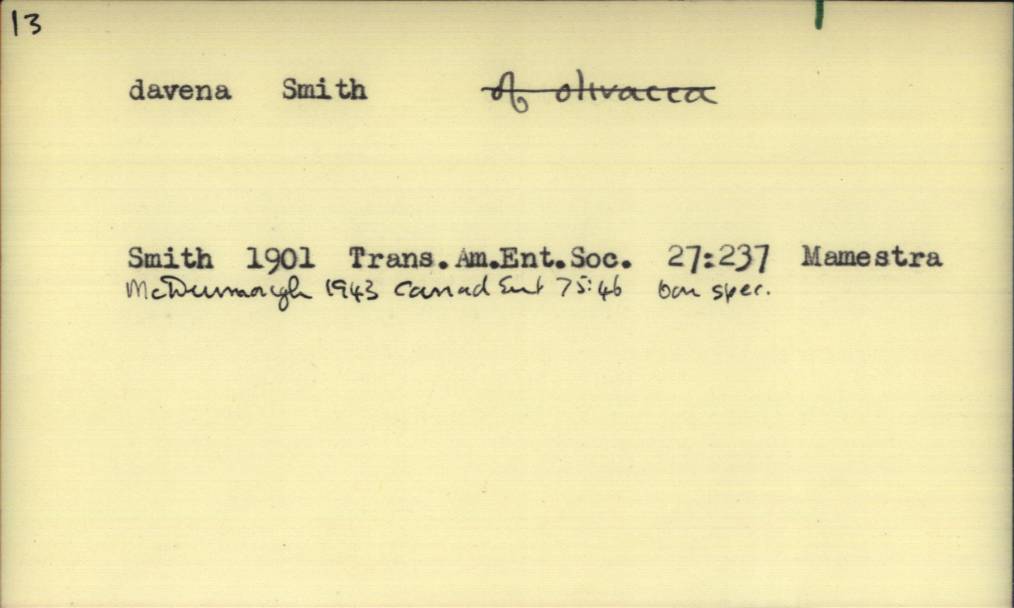 13
davena Smith A olivacea
Smith 1901 Trans. Am.Ent.Soc. 27:237 Mamestra
McDunnough 1943 Canad Ent 75:46 bon spec.